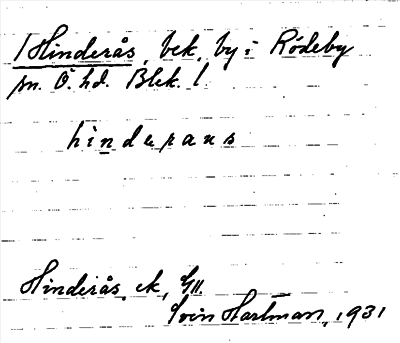 / Hinderås, bek, by i Rödeby
sn. Ö. hd. Blek. /
hinderaus
Hinderås, ek, GII.
Sven Hartman, 1931